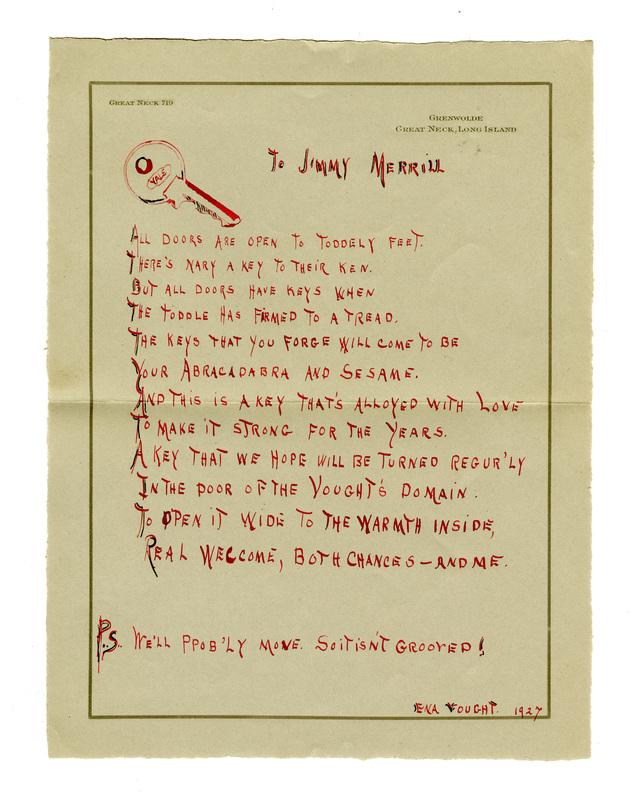 GREAT NECK 719
GRENWOLDE
GREAT NECK, LONG ISLAND
TO JIMMY MERRILL
YALE
ALL DOORS ARE OPEN TO TODDELY FEET.
THERE'S NARY A KEY TO THEIR KEN.
BUT ALL DOORS HAVE KEYS WHEN
THE TODDLE HAS FIRMED TO A TREAD.
THE KEYS THAT YOU FORGE WILL COME TO BE
YOUR ABRACADABRA AND SESAME.
AND THIS IS A KEY THAT'S ALLOYED WITH LOVE
TO MAKE IT STRONG FOR THE YEARS.
A KEY THAT WE HOPE WILL BE TURNED REGUR'LY
IN THE DOOR OF THE VOUGHT'S DOMAIN.
TO OPEN IT WIDE TO THE WARMTH INSIDE,
REAL WELCOME, BOTH CHANCES — AND ME.
P.S. WE'LL PPOB'LY MOVE. SO IT ISN'T GROOVED!
ENA VOUGHT. 1927